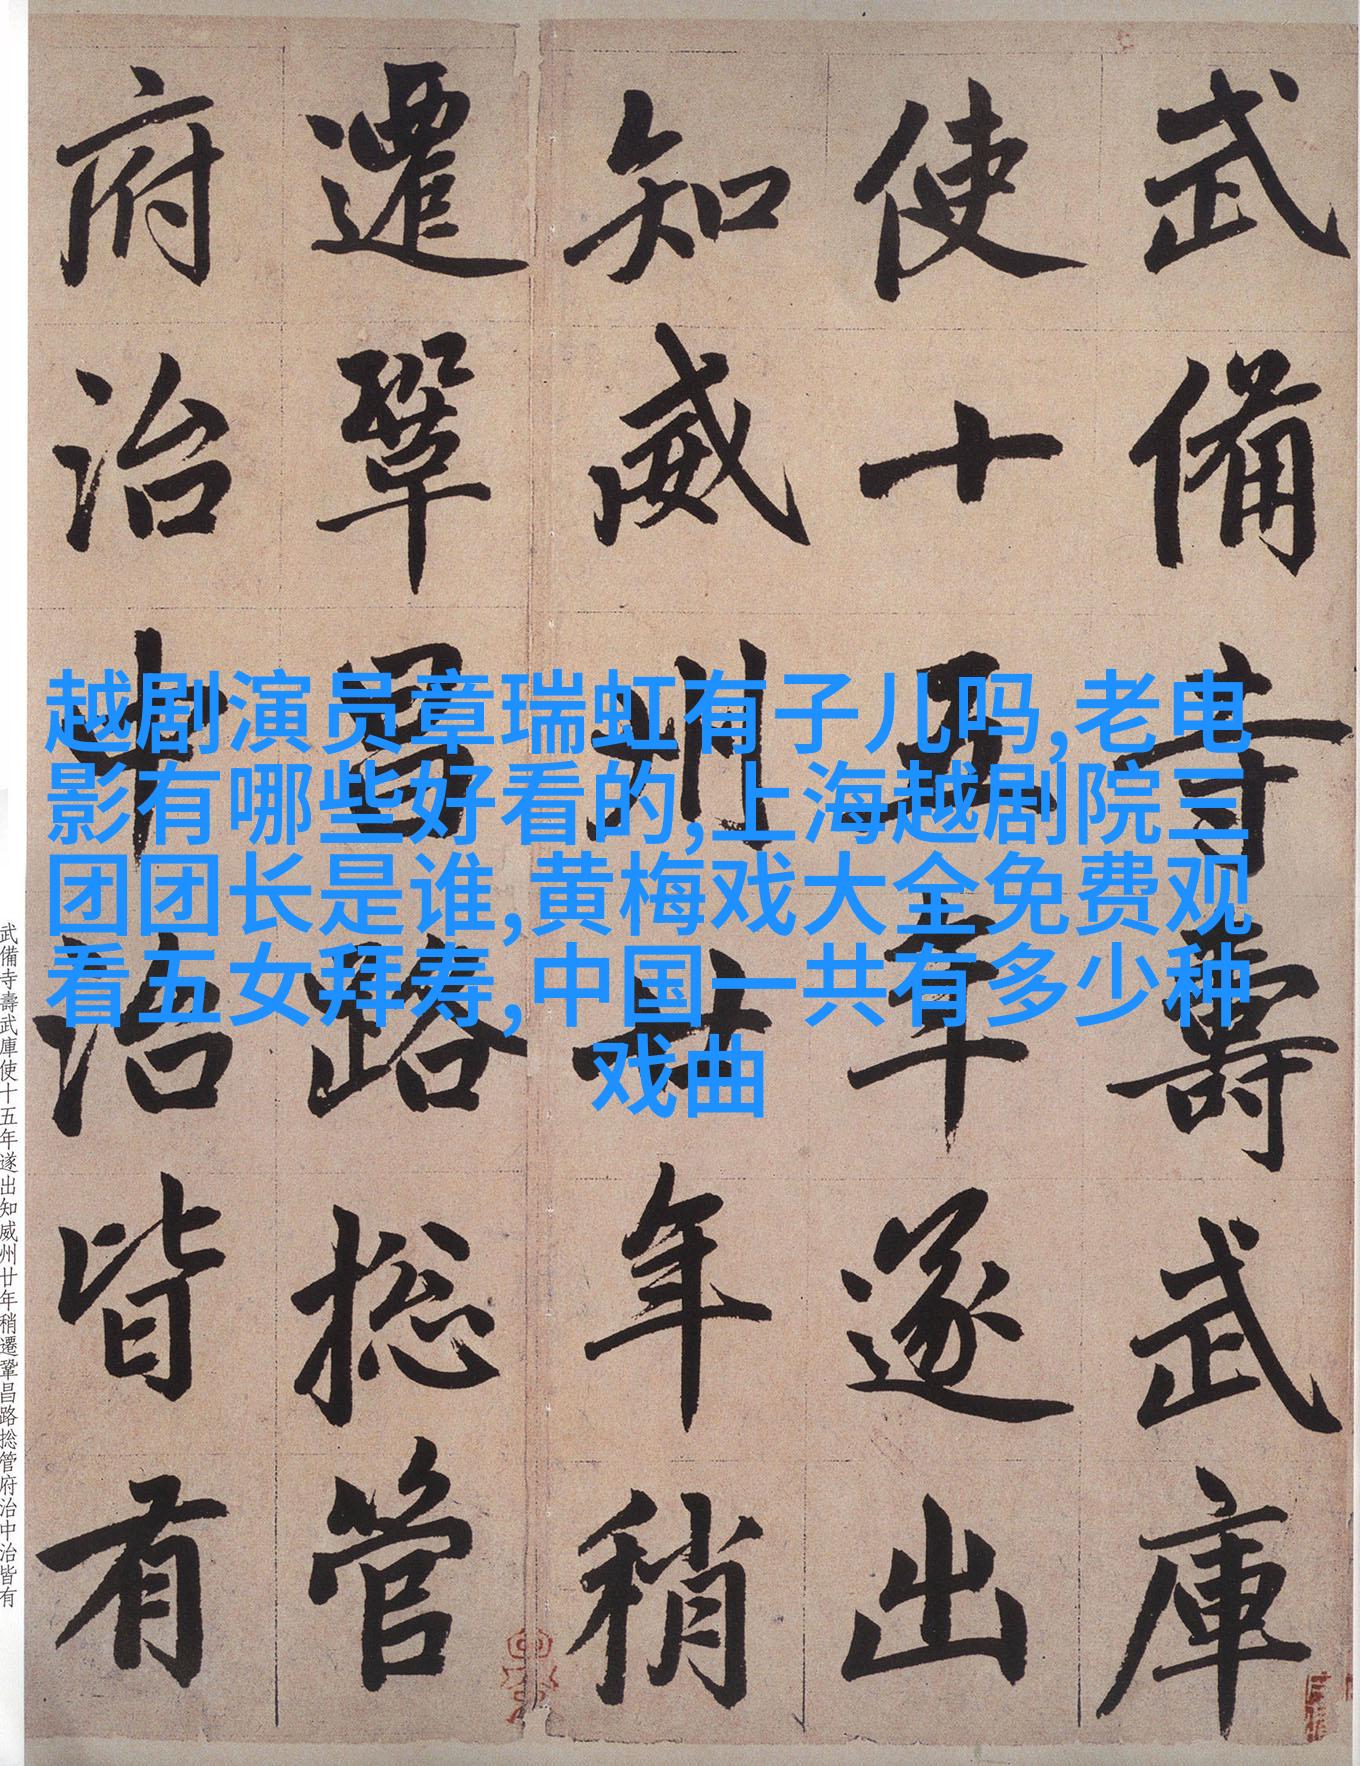 武備寺壽武庫
使十五年遂出
知威州廿年稍
遷鞏昌路捴管
府治中治皆有
越剧演员章瑞虹有子儿吗,老电
影有哪些好看的,上海越剧院三
团团长是谁,黄梅戏大全免费观
看五女拜寿,中国一共有多少种
戏曲
武備寺壽武庫使十五年遂出知威州廿年稍遷鞏昌路捴管府治中治皆有